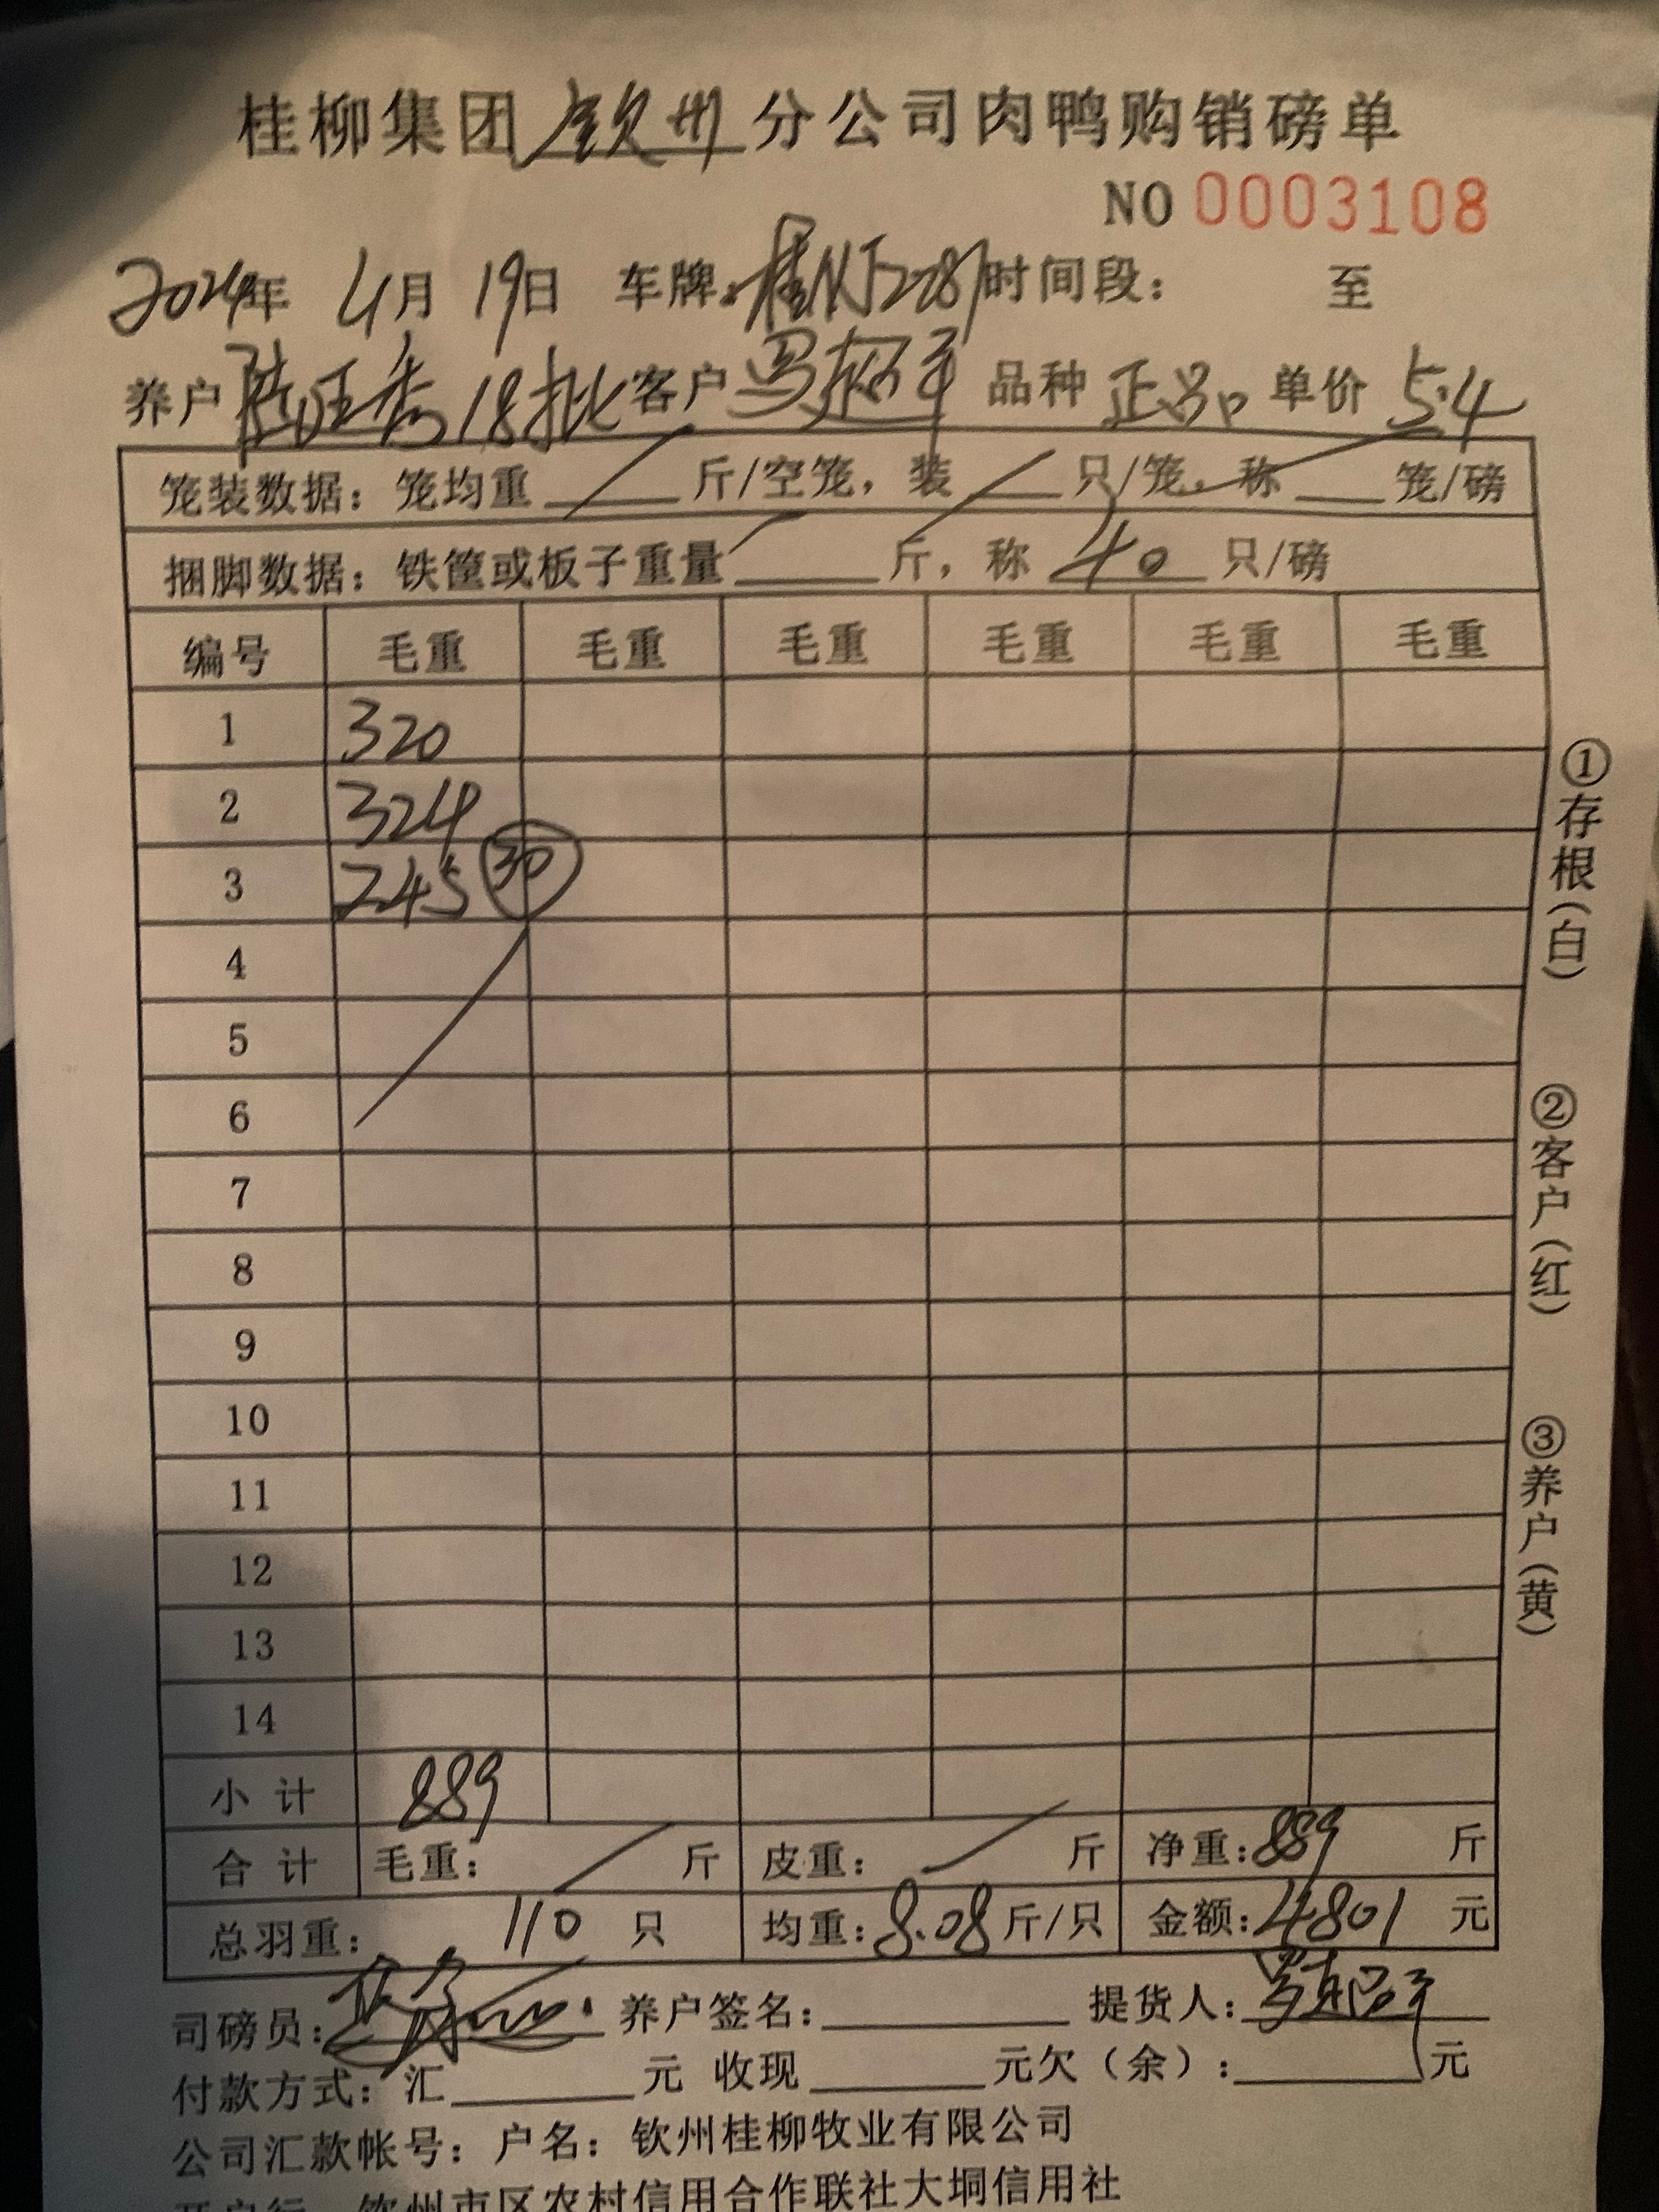 桂柳集团钦州分公司肉鸭购销磅单
NO 0003108
2024年 4月 19日 车牌:桂NJ2287时间段: 至
养户 陆旺秀 18批 客户 罗超平 品种 正品 单价 5.4
笼装数据:笼均重 斤/空笼,装 只/笼,称 笼/磅
捆脚数据:铁筐或板子重量 斤,称 40 只/磅
编号 毛重 毛重 毛重 毛重 毛重 毛重
1 320
2 324
3 245 30
4
5
6
7
8
9
10
11
12
13
14
小计 889
合计 毛重: 斤 皮重: 斤 净重:889 斤
总羽重: 110 只 均重:8.08斤/只 金额:4801 元
司磅员: 养户签名: 提货人:罗超平
付款方式:汇 元 收现 元欠(余): 元
公司汇款帐号:户名:钦州桂柳牧业有限公司
开户行 钦州市区农村信用合作联社大垌信用社
①存根(白)
②客户(红)
③养户(黄)